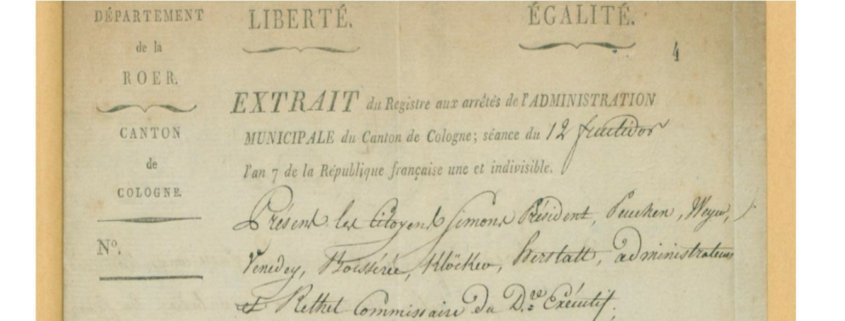 DÉPARTEMENT
de la
ROER.
CANTON
de
COLOGNE.
Nº.
LIBERTÉ.
ÉGALITÉ.
4
EXTRAIT du Registre aux arrêtés de l'ADMINISTRATION
MUNICIPALE du Canton de Cologne; séance du 12 fructidor
l'an 7 de la République française une et indivisible.
Présens les Citoyens Simons Président, Peucken, Weyer,
Venedey, Boisserée, Klöcker, Herstatt, administrateurs
et Rethel Commissaire du D.re Exécutif.